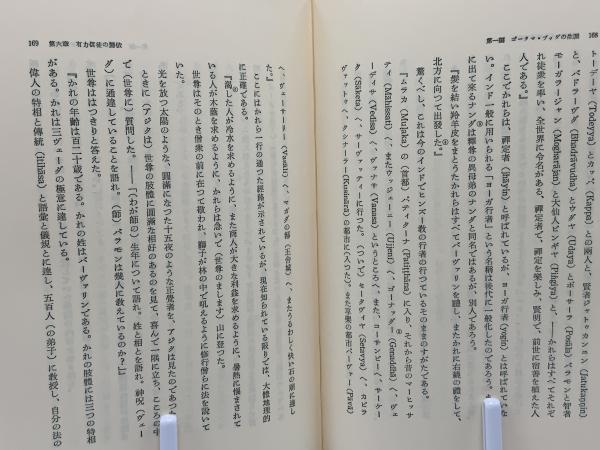 168　第一編　ゴータマ・ブッダの生涯
トーデーヤ (Todeyya) とカッパ (Kappa) との両人と、賢者ジャトゥカンニン (Jatukaṇṇin)
と、バドラーヴダ (Bhadrāvudha) とウダヤ (Udaya) とポーサーラ (Posāla) バラモンと智者
モーガラージャン (Mogharājan) と大仙人ピンギヤ (Piṅgiya) と、――かれらはすべてそれぞ
れ徒衆を率い、全世界に令名があり、禅定者で、禅定を楽しみ、賢明で、前世に宿善を植えた人
人である。』
ここでかれらは、禅定者 (jhāyin) と呼ばれているが、ヨーガ行者 (yogin) とは呼ばれていな
い。インド一般に用いられる「ヨーガ行者」という名称は後代に一般化したのであろう。
に出て来るナンダは釈尊の異母弟のナンダと同名ではあるが、別人であろう。
『髪を結い羚羊皮をまとうたかれらはすべてバーヴァリンを礼し、またかれに右繞の礼をして、
北方に向つて出発した。』
驚くべし、これは今のインドでヒンズー教の行者の行つているそのままのすがたである。
『ムラカ (Muḷaka) の〔首都〕パティターナ (Patiṭṭhāna) に入り、それから昔のマーヒッサ
ティ (Māhissati) へ、またウッジェーニー (Ujjenī) へ、ゴーナッダ (Gonaddha) へ、ヴェ
ーディサ (Vedisa) へ、ヴァナサ (Vanasa) というところへ、また、コーサンビーへ、サーケー
タ (Sāketa) へ、サーヴァッティーに行つた。〔ついで〕セータヴィヤ (Setavya) へ、カピラ
ヴァットゥへ、クシナーラー (Kusinārā) の都市に〔入つた〕。また享楽の都市パーヴァー (Pāvā)
169　第六章　有力信徒の帰依
へ、ヴェーサーリー (Vesālī) へ、マガダの都〔王舎城〕へ、またうるわしく快い石の廟に達し
た。』
ここにはかれら一行の通つた経路が示されているが、現在知られている限りでは、大体地理的
に正確である。
『渇した人が冷水を求めるように、また商人が大きな利益を求めるように、暑熱に悩まされて
いる人が木蔭を求めるように、かれらは急いで〔世尊のまします〕山に登つた。
世尊はそのとき僧衆の前に在つて敬われ、獅子が林の中で吼えるように修行僧らに法を説いて
いた。
光を放つ太陽のような、円満になつた十五夜のような正覚者を、アジタは見たのであつた
ときに〔アジタは〕世尊の肢体に円満な相好のあるのを見て、喜んで一隅に立ち、こころの中
で〔世尊に〕質問した。――「〔わが師の〕生年について語れ。姓と相とを語れ。神呪〔ヴェー
ダ〕に通達していることを語れ。〔師〕バラモンは幾人に教えているのか？」
世尊ははつきりと答えた。
『かれの年齢は百二十歳である。かれの姓はバーヴァリンである。かれの肢体には三つの特相
がある。かれは三ヴェーダの極意に達している。
偉人の特相と伝統 (itihāsa) と語彙と儀規とに達し、五百人〔の弟子〕に教授し、自分の法の